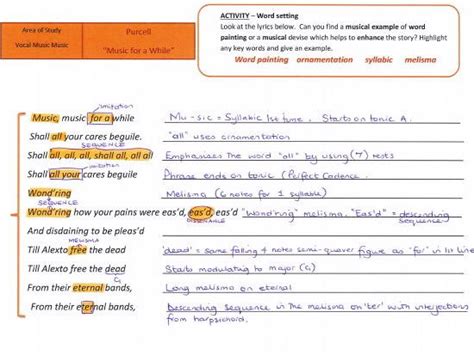 Area of Study
Vocal Music Music
Purcell
"Music for a While"
ACTIVITY – Word setting
Look at the lyrics below. Can you find a musical example of word
painting or a musical devise which helps to enhance the story? Highlight
any key words and give an example.
Word painting ornamentation syllabic melisma
imitation
Music, music for a while
Mu-sic = Syllabic 1st tune. Starts on tonic A.
Shall all your cares beguile.
"all" uses ornamentation
SEQUENCE
Shall all, all, all, shall all, all all
Emphasises the word "all" by using (7) rests
imitation
Shall all your cares beguile
Phrase ends on tonic (Perfect Cadence.
Wond'ring
Melisma (6 notes for 1 syllable)
SEQUENCE
Wond'ring how your pains were eas'd, eas'd, eas'd
"Wond'ring" melisma. "Eas'd" = descending
DISSONANCE
Sequence.
And disdaining to be pleas'd
MELISMA
Till Alexto free the dead
'dead' = same falling 4 notes semi-quaver figure as "for" in 1st line
Till Alexto free the dead
Starts modulating to major (G)
G
From their eternal bands,
Long melisma on eternal
From their eternal bands,
Descending sequence in the melisma on 'ter' with interjections
from harpsichord.